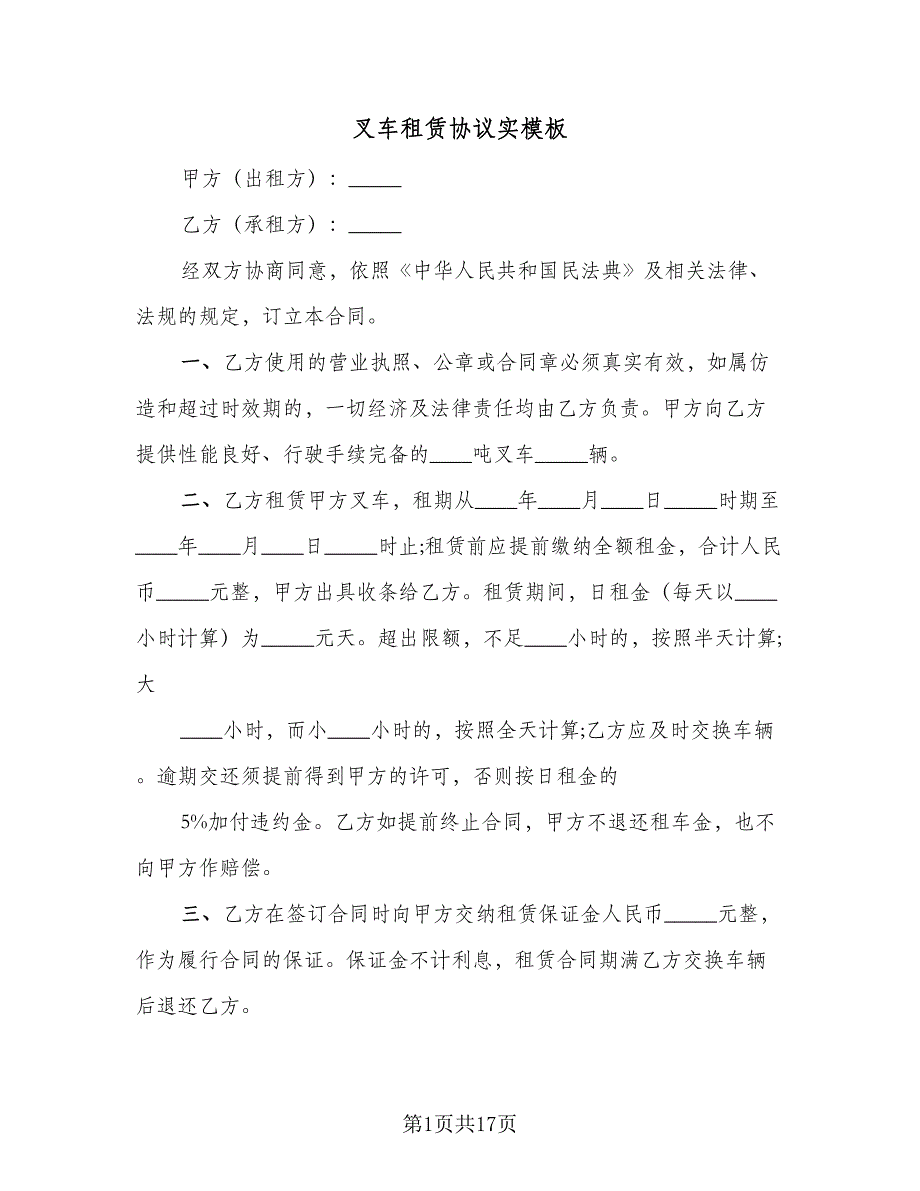 叉车租赁协议实模板
甲方（出租方）：_____
乙方（承租方）：_____
经双方协商同意，依照《中华人民共和国民法典》及相关法律、
法规的规定，订立本合同。
一、乙方使用的营业执照、公章或合同章必须真实有效，如属仿
造和超过时效期的，一切经济及法律责任均由乙方负责。甲方向乙方
提供性能良好、行驶手续完备的____吨叉车_____辆。
二、乙方租赁甲方叉车，租期从____年____月____日_____时期至
____年____月____日_____时止;租赁前应提前缴纳全额租金，合计人民
币_____元整，甲方出具收条给乙方。租赁期间，日租金（每天以____
小时计算）为_____元天。超出限额，不足____小时的，按照半天计算;
大
____小时，而小____小时的，按照全天计算;乙方应及时交换车辆
。逾期交还须提前得到甲方的许可，否则按日租金的
5%加付违约金。乙方如提前终止合同，甲方不退还租车金，也不
向甲方作赔偿。
三、乙方在签订合同时向甲方交纳租赁保证金人民币_____元整，
作为履行合同的保证。保证金不计利息，租赁合同期满乙方交换车辆
后退还乙方。
第1页共17页